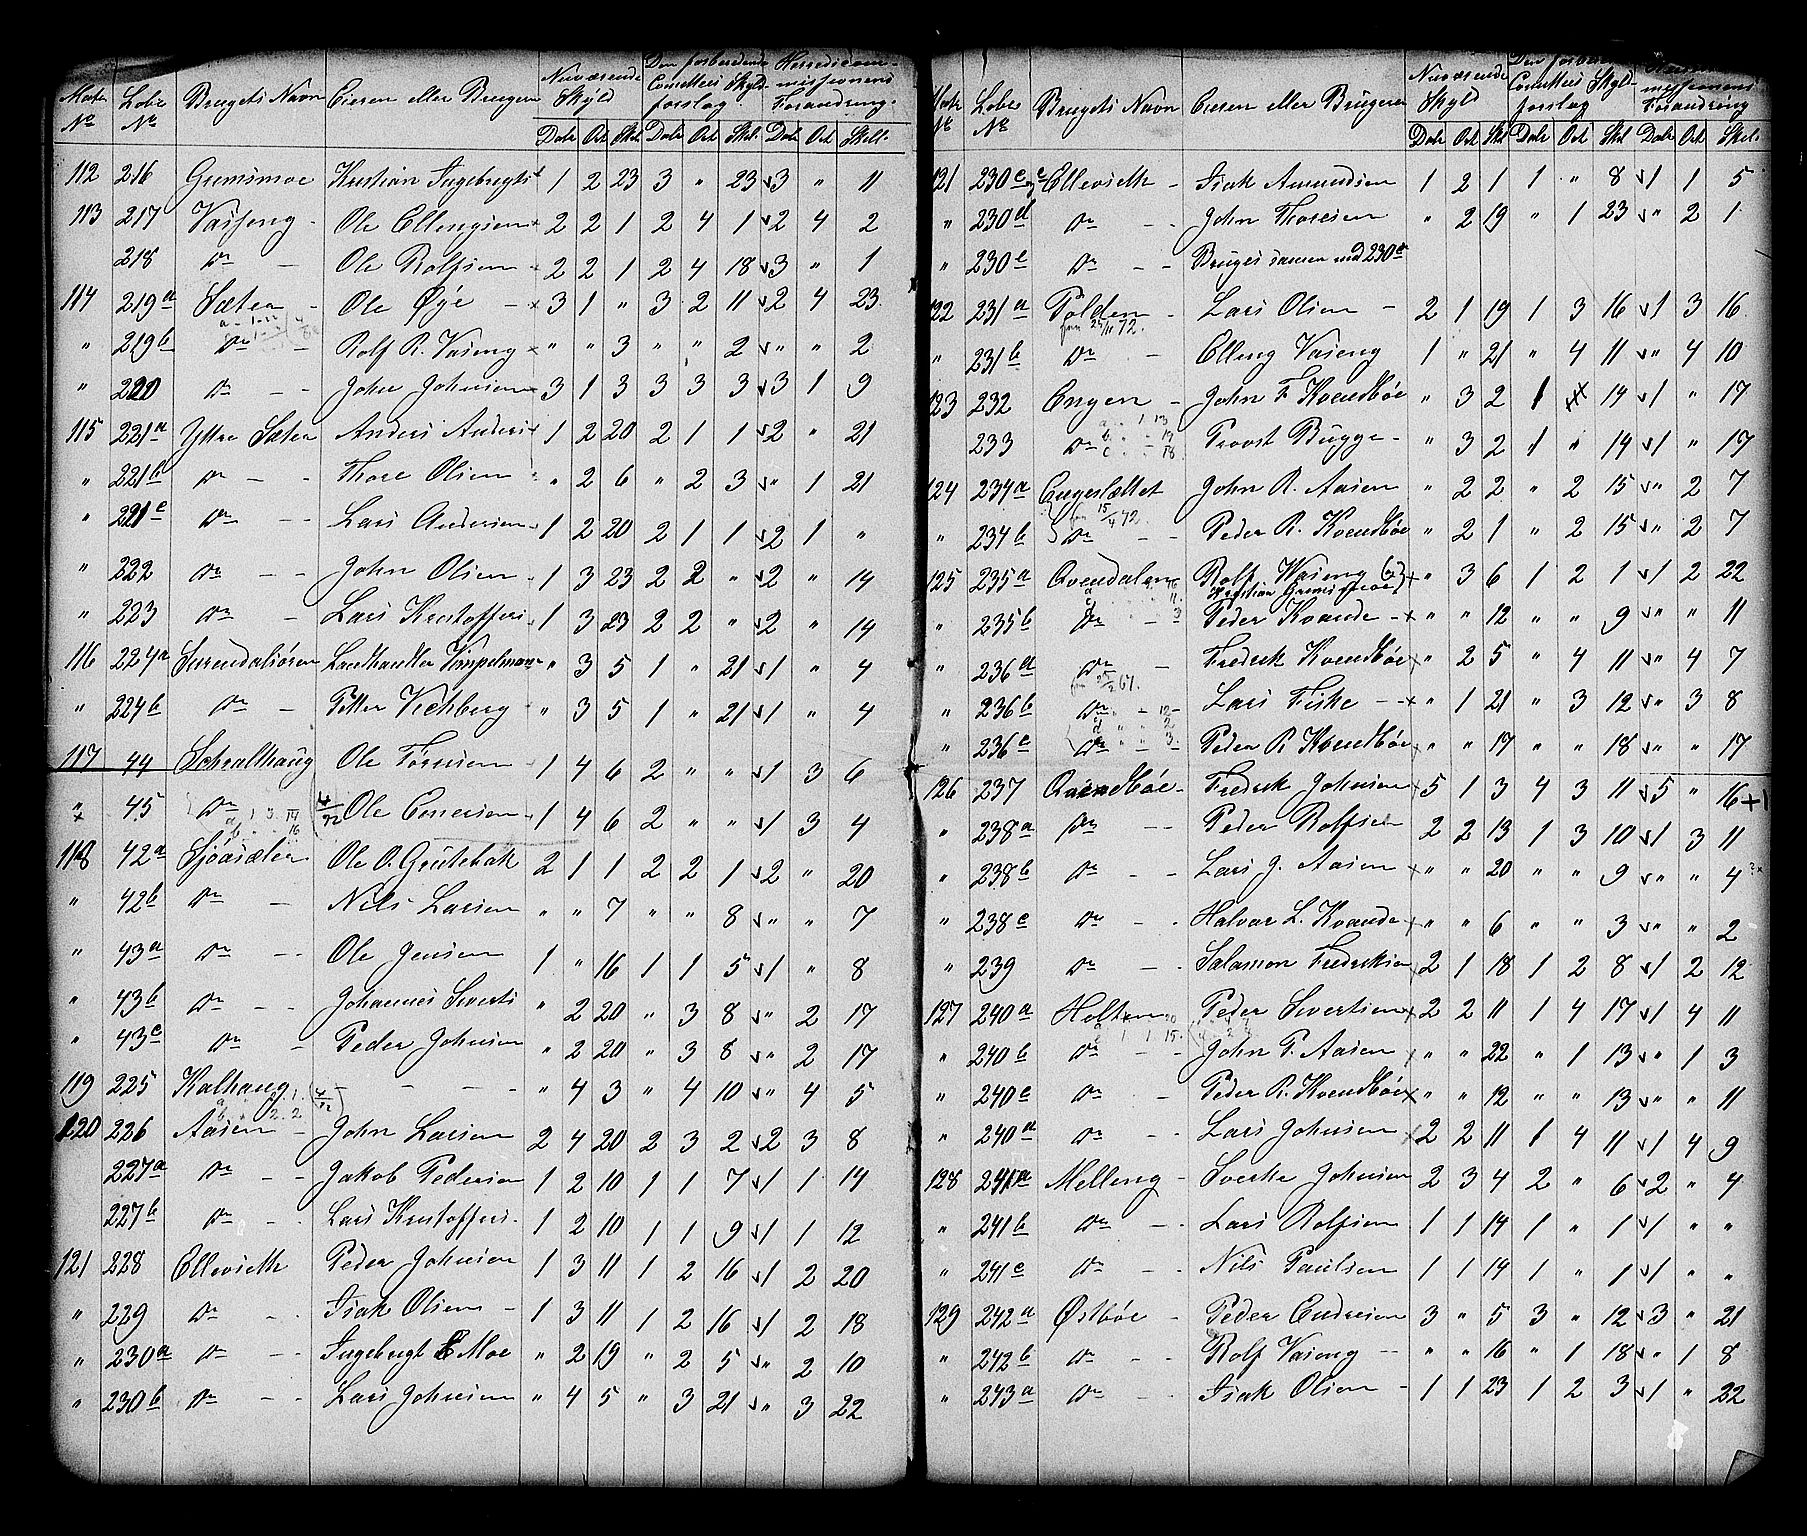 Matr. № Løbe № Brugets Navn Eieren eller Brugeren Nuværende Skyld Den forberedende Comittees Skyld-forslag Herredscommissionens Forandring
Dalr Ort Skil Dalr Ort Skil. Dalr Ort Skill.
112 216 Gunismoe Kristian Ingebrigts 1 2 23 3 " 23 v3 " 11
113 217 Vaseng - Ole Ellingsen 2 2 1 2 4 1 v2 4 2
218 Do - Ole Rolfsen 2 2 1 2 4 18 v3 " 1
114 219a Sæter - Ole Øye - 3 1 " 3 2 11 v2 4 23
" 219b Do - Rolf R. Vaseng " " 3 " " 2 v" " 2
" 220 Do - John Johnsen 3 1 3 3 3 3 v3 1 9
115 221a Ytre Sæter Anders Anders 1 2 20 2 1 1 v2 " 21
" 221b Do - - Thore Olsen " 2 6 " 2 3 v" 1 21
" 221c Do - - Lars Andersen 1 2 20 2 1 1 v2 1 "
" 222 Do - - John Olsen 1 3 23 2 2 " v2 " 14
" 223 Do - Lars Kristoffers 1 3 23 2 2 " v2 " 14
116 224a Surendalsøren Landhandler Timpelmann " 3 5 1 " 21 v1 " 4
" 224b Do - Petter Vichberg " 3 5 1 " 21 v1 " 4
117 44 Schralthaug Ole Tøresen 1 4 6 2 " " v1 3 6
" x 45 Do Ole Ennersen 1 4 6 2 " " v1 3 4
a 1 3. 14
b " " 16
118 42a Sjøasæter Ole O. Grytebak 2 1 1 2 2 1 v2 " 20
" 42b Do - Nils Larsen " " 7 " " 8 v" " 7
" 43a Do - - Ole Jensen 1 " 16 1 1 5 v1 " 8
" 43b Do - - Johannes Siverts " 2 20 " 3 8 v" 2 17
" 43c Do - Peder Johnsen " 2 20 " 3 8 v" 2 17
119 225 Kalhaug - - - " 4 3 " 4 10 v" 4 5
120 226 Aasen - John Larsen 2 4 20 2 3 2 v2 3 8
227a Do - - Jakob Pedersen 1 2 10 1 1 7 v1 1 14
227b Do - - Lars Kristoffers. 1 2 10 1 1 9 v1 1 12
121 228 Ellevieth Peder Johnsen 1 3 11 1 2 16 v1 2 20
" 229 Do - - Isak Olsen - 1 3 11 1 2 16 v1 2 18
" 230a Do - - Ingebrigt E Moe " 2 19 " 2 5 v" 2 10
" 230b Do - - Lars Johnsen " 4 5 " 3 21 v" 3 22
Matr. № Løbe № Brugets Navn Eieren eller Brugeren Nuværende Skyld Comittees Skyld-forslag missionens Forandring
Dalr Ort Skil Dalr Ort Skil Dalr Ort Skil.
121 230c Ellevieth - Isak Amundsen 1 2 1 1 " 8 v1 1 5
" 230d Do - - John Thoresen " 2 19 " 1 23 v" 2 1
" 230e Do - - Bruges samen med 230a
122 231a Polden - Lars Olsen - 2 1 19 1 3 16 v1 3 16
" 231b Do - Elling Vaseng 1 " 21 " 4 11 v" 4 10
123 232 Engen - John F Kvendbøe " 3 2 1 14 v1 " 17
233 Do - Provst Bugge - " 3 2 1 " 14 v1 " 17
124 234a Engeslættet John R. Aasen " 2 2 " 2 15 v" 2 7
" 234b Do - - Peder R. Kvendbøe " 2 1 " 2 15 v" 2 7
125 235a Qvendalen Rolf Vaseng " 3 6 1 2 1 v1 2 22
Kristian Grimsmoe
" 235b Do - Peder Kvande " " 12 " " 9 v" " 11
" 236a Do - Fredrik Kvendbøe " 2 5 " 4 11 v" 4 7
" 236b Do Lars Fiske - " 1 21 " 3 12 v" 3 8
" 236c Do - Peder R Kvendbøe " " 17 " " 18 v" " 17
126 237 Qvendbøe - Fredrik Johnsen 5 1 3 4 3 11 v5 " 16
" 238a Do - - Peder Rolfsen 2 2 13 1 3 10 v1 3 11
" 238b Do - - Lars J. Aasen " " 20 " " 9 v" " 4
" 238c Do - - Halvor L. Kvande " " 6 " " 3 v" " 2
" 239 Do - - Salamon Fredriksen 2 1 18 1 2 8 v1 2 12
127 240a Holten Peder Sivertsen 2 2 11 1 4 17 v1 4 11
" 240b Do - - John P. Aasen " " 22 " 1 13 v" 1 3
" 240c Do - Peder R. Kvendbøe " " 12 " " 13 v" " 11
" 240a Do - - Lars Johnsen 2 2 11 1 4 11 v1 4 9
128 241a Melleng - Sverke Johnsen 2 3 4 2 " 6 v2 " 4
" 241b Do - - Lars Rolfsen 1 1 14 1 " 1 v1 " "
" 241c Do - - Nils Paulsen 1 1 14 1 " 1 v1 " "
129 242a Østbøe - Peder Endresen 3 " 5 3 " 12 v3 " 21
" 242b Do - - Rolf Vaseng - - " " 16 " 1 18 v" 1 8
" 243a Do - - Isak Olsen - 1 1 23 1 2 3 v1 " 22
8